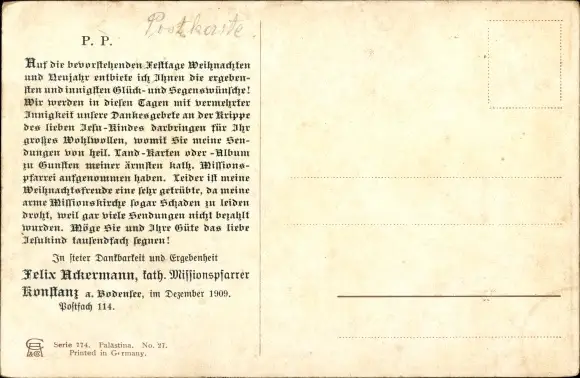 Postkarte.
P. P.
Auf die bevorstehenden Festtage Weihnachten
und Neujahr entbiete ich Ihnen die ergeben-
sten und innigsten Glück- und Segenswünsche!
Wir werden in diesen Tagen mit vermehrter
Innigkeit unsere Dankesgebete an der Krippe
des lieben Jesu-Kindes darbringen für Ihr
großes Wohlwollen, womit Sie meine Sen-
dungen von heil. Land-Karten oder -Album
zu Gunsten meiner ärmsten kath. Missions-
pfarrei aufgenommen haben. Leider ist meine
Weihnachtsfreude eine sehr getrübte, da meine
arme Missionskirche sogar Schaden zu leiden
droht, weil gar viele Sendungen nicht bezahlt
wurden. Möge Sie und Ihre Güte das liebe
Jesukind tausendfach segnen!
In steter Dankbarkeit und Ergebenheit
Felix Ackermann, kath. Missionspfarrer
Konstanz a. Bodensee, im Dezember 1909.
Postfach 114.
Serie 774. Palästina. No. 21.
Printed in Germany.